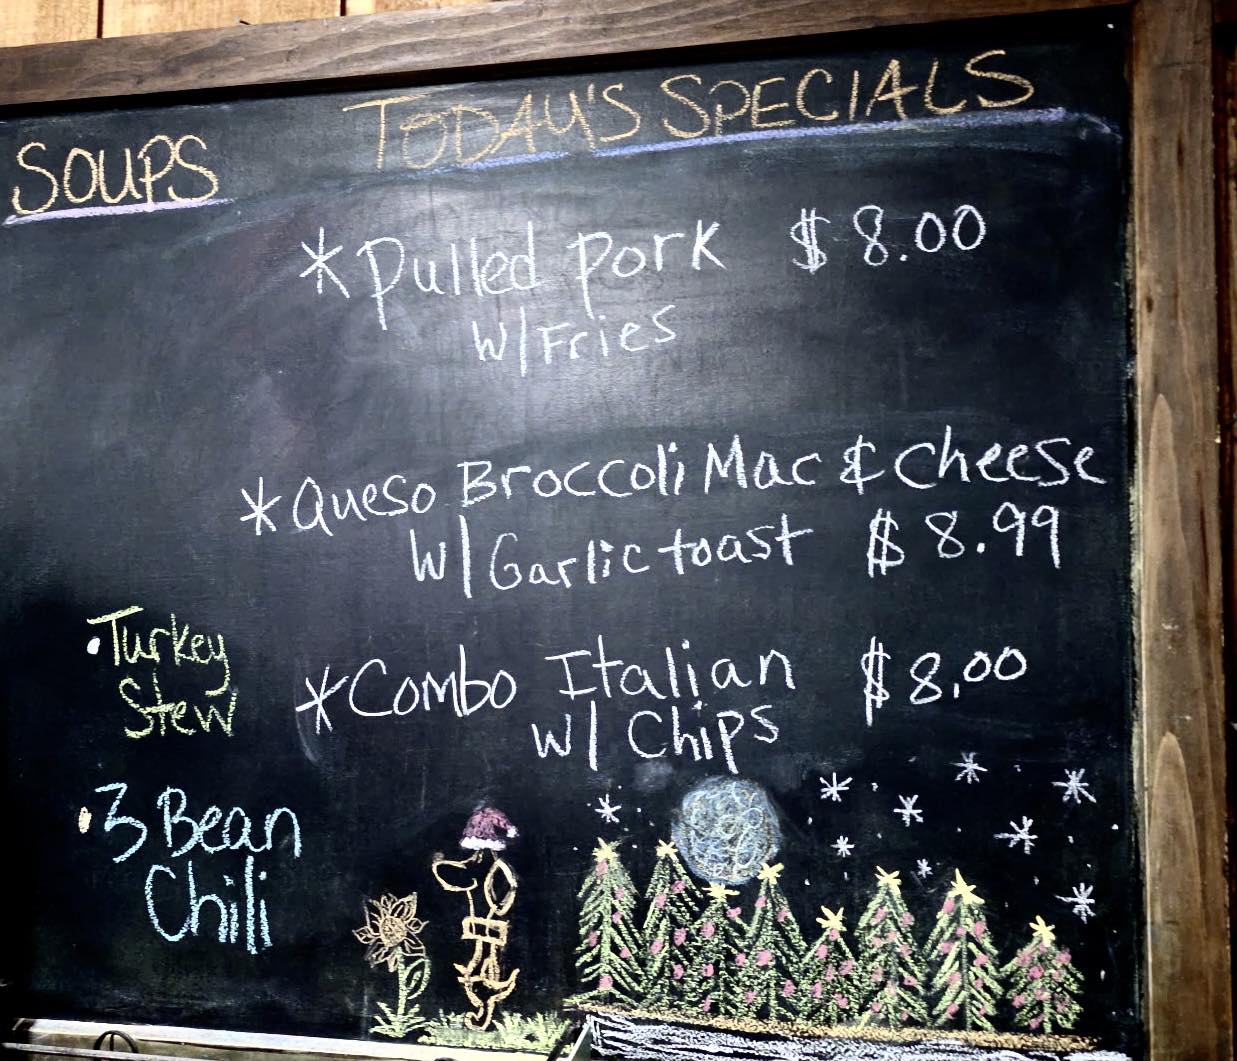 SOUPS
TODAY'S SPECIALS
* Pulled pork $8.00
w/Fries
* Queso Broccoli Mac & Cheese
w/ Garlic toast $8.99
* Combo Italian $8.00
w/ Chips
• Turkey
Stew
• 3 Bean
Chili